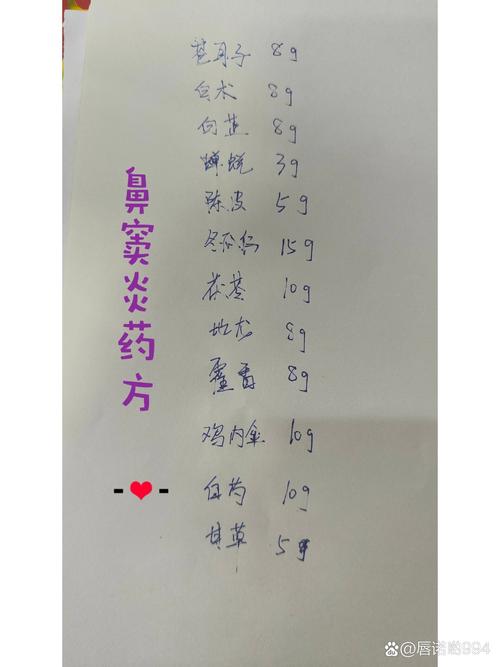 苍耳子 8g
白术 8g
白芷 8g
蝉蜕 3g
陈皮 5g
冬瓜仁 15g
茯苓 10g
地龙 8g
藿香 8g
鸡内金 10g
白芍 10g
甘草 5g
鼻窦炎药方
-❤-
@唇诺嘟994